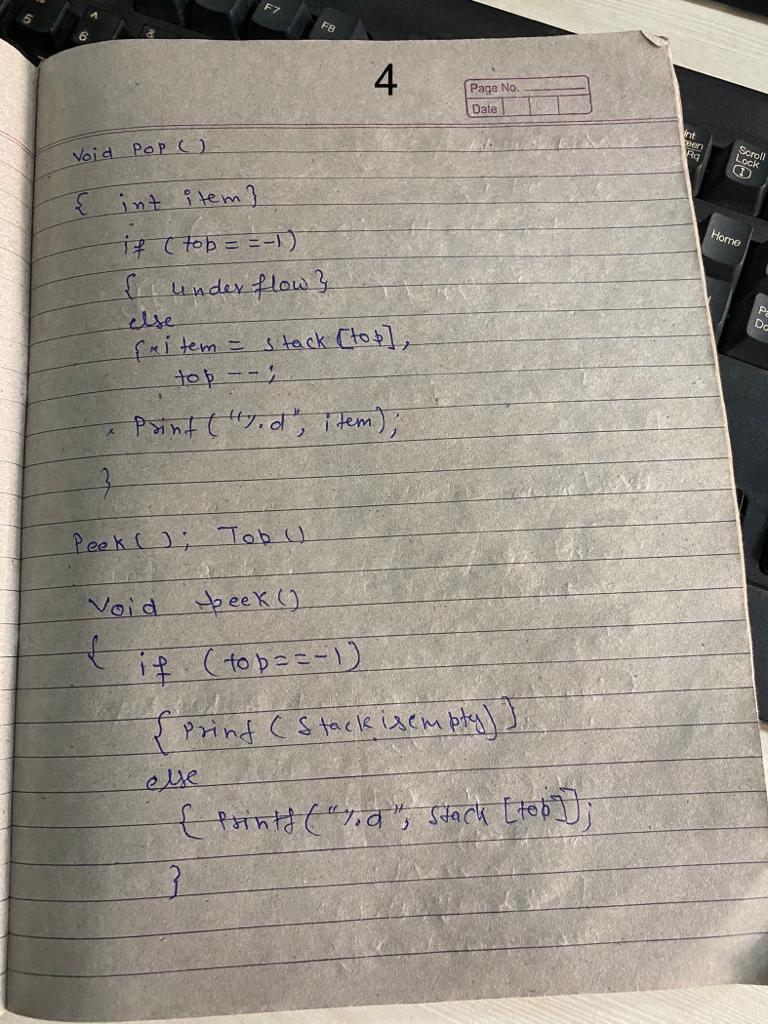 5
6
^
&
F7
F8
4
Page No.
Date
Scroll
Lock
Home
Void POP ( )
{ int item}
if (top = = -1)
{ underflow}
else
{ item = stack [top],
top --;
x Prinf ("%d", item);
}
Peek ( ); Top ()
Void peek()
{ if (top==-1)
{ Prinf (Stack isempty) }
else
{ Printf ("%d", stack [top]];
}